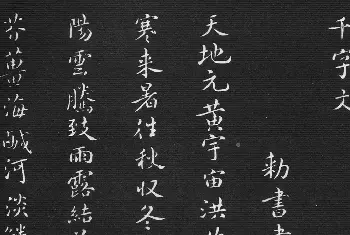 千字文
勅書
天地元黄宇宙洪
寒来暑往秋収冬
陽雲騰致雨露結
芥薑海鹹河淡